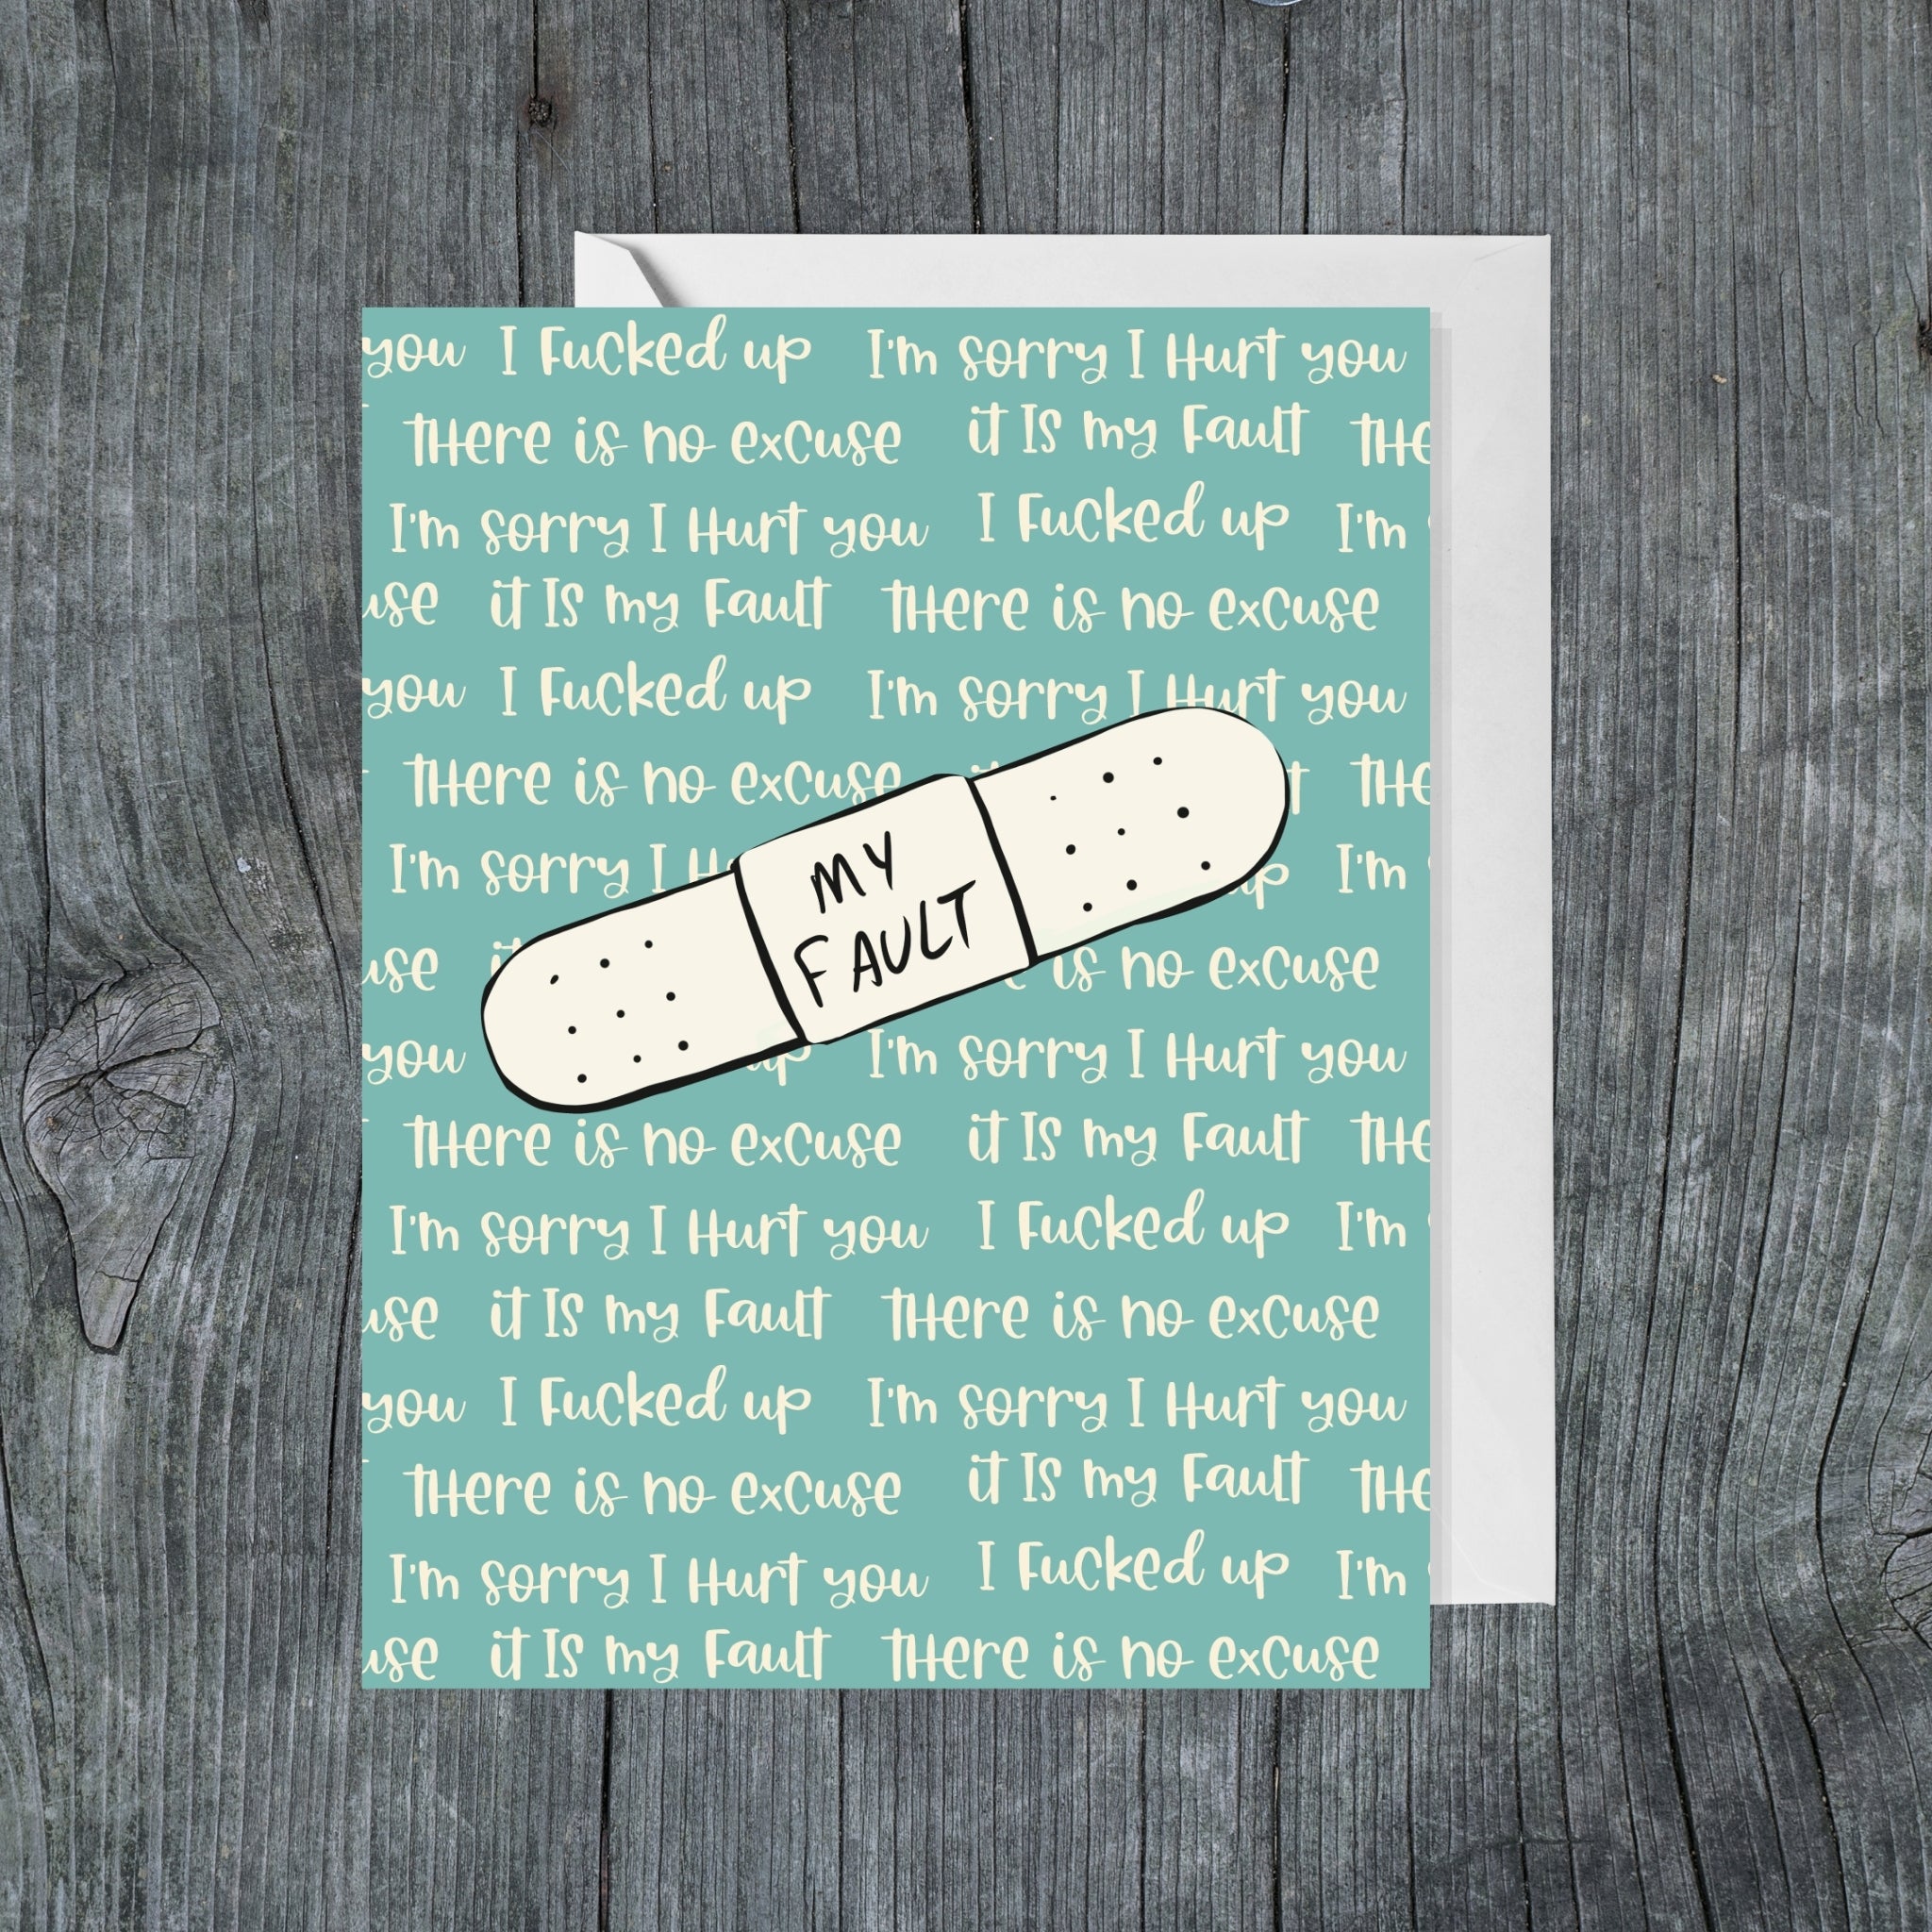 you I Fucked up I'm sorry I Hurt you
there is no excuse it Is my Fault the
I'm sorry I Hurt you I Fucked up I'm
use it Is my Fault there is no excuse
you I Fucked up I'm sorry I Hurt you
there is no excuse the
I'm sorry I up I'm
MY
FAULT
use is no excuse
you up I'm sorry I Hurt you
there is no excuse it Is my Fault the
I'm sorry I Hurt you I Fucked up I'm
use it Is my Fault there is no excuse
you I Fucked up I'm sorry I Hurt you
there is no excuse it Is my Fault the
I'm sorry I Hurt you I Fucked up I'm
use it Is my Fault there is no excuse